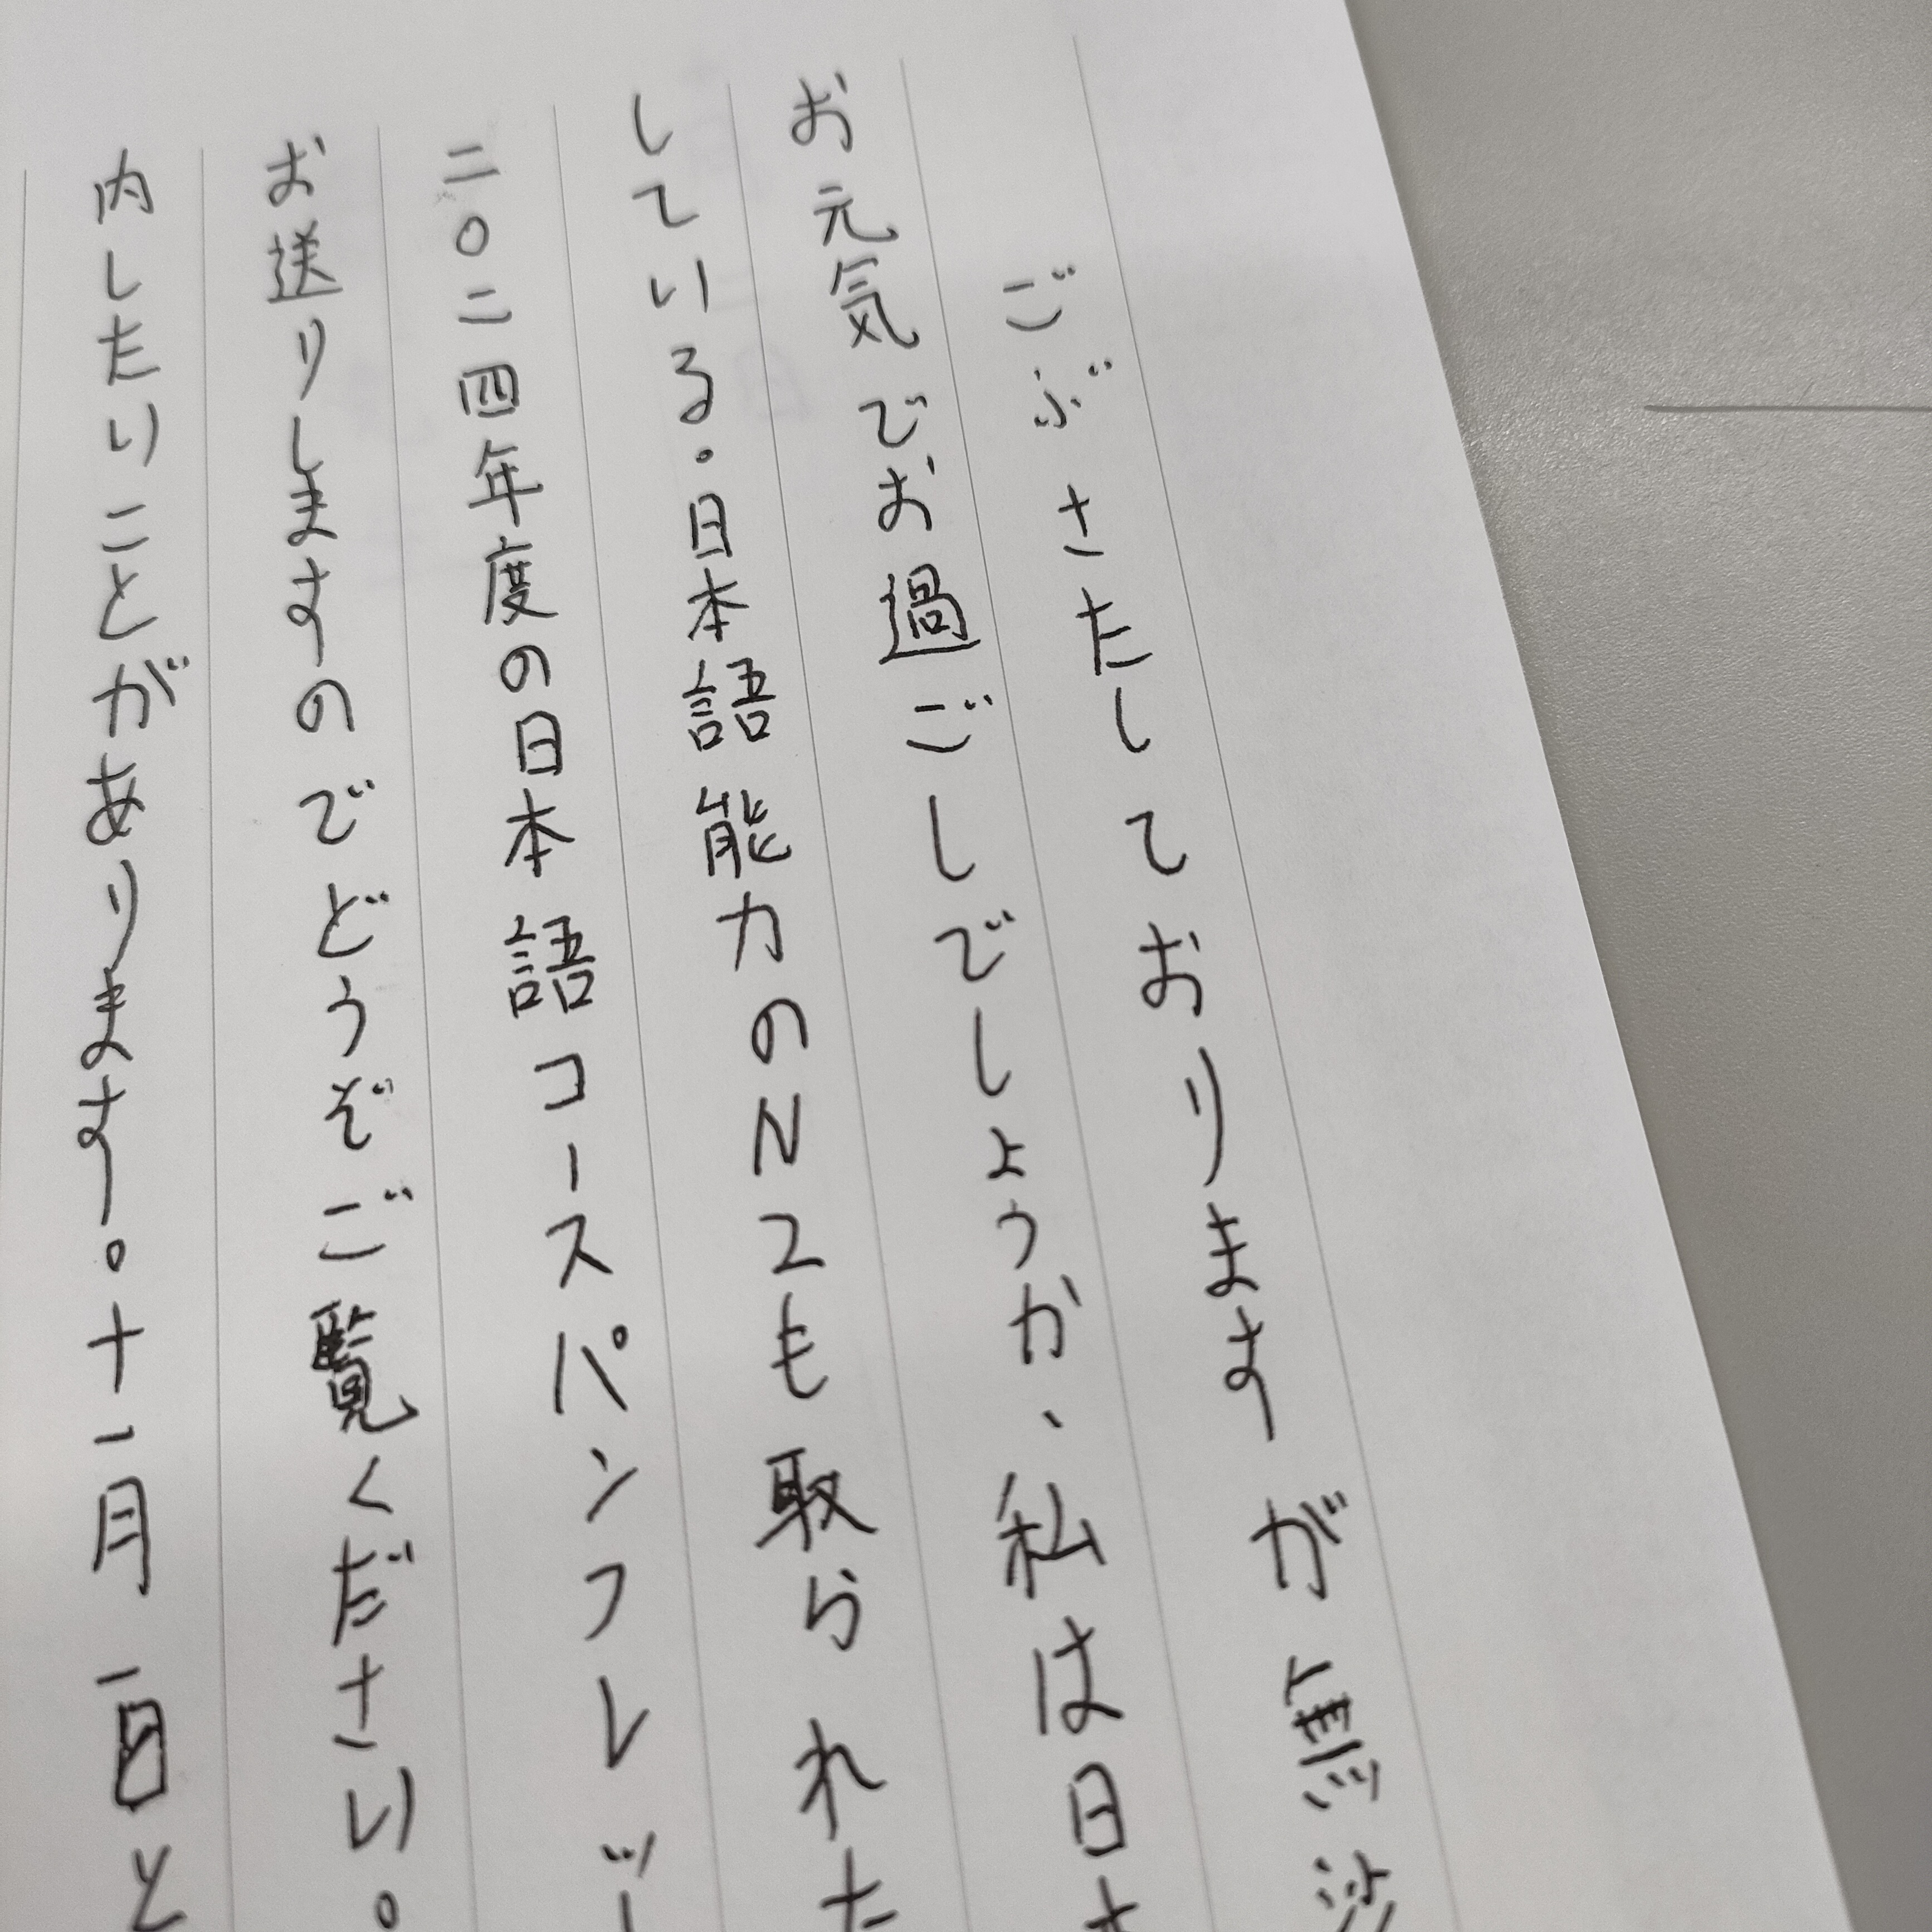 ごぶさたしておりますが無沙
お元気でお過ごしでしょうか、私は日本
している。日本語能力のN2も取られた
二〇二四年度の日本語コースパンフレット
お送りしますのでどうぞご覧ください。
内したりことがあります。十一月一日と